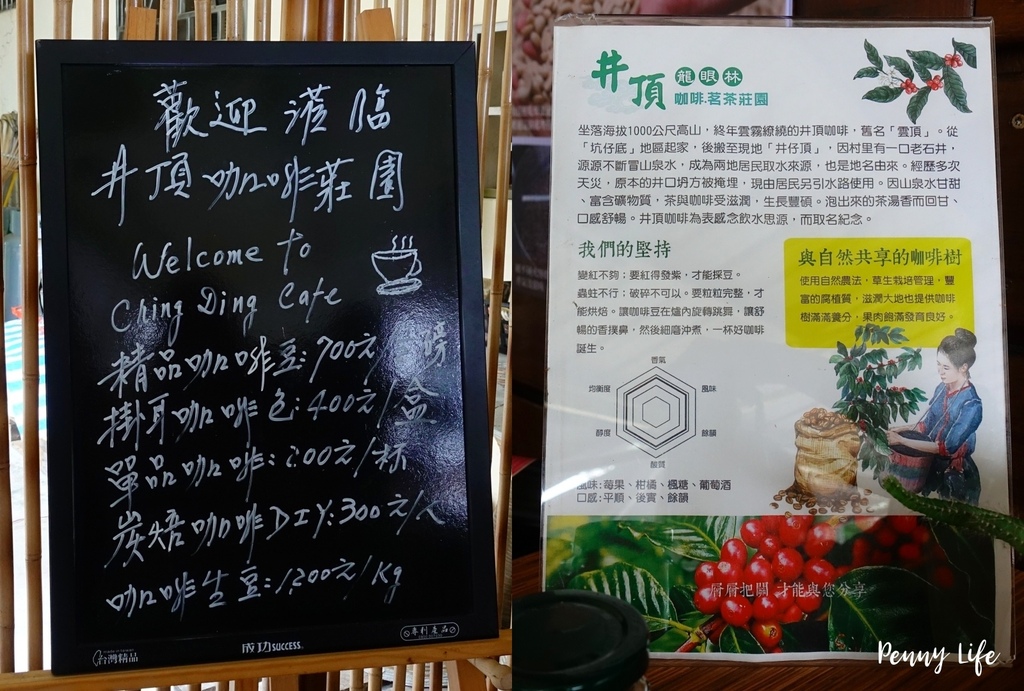 歡迎蒞臨
井頂咖啡莊園
Welcome to
Ching Ding Cafe
精品咖啡豆:900元/磅
掛耳咖啡包:400元/盒
單品咖啡:200元/杯
炭焙咖啡DIY:300元/人
咖啡生豆:1200元/Kg
台灣精品
成功SUCCESS
專利產品
井頂
龍眼林
咖啡.茗茶莊園
坐落海拔1000公尺高山,終年雲霧繚繞的井頂咖啡,舊名「雲頂」。從
「坑仔底」地區起家,後搬至現地「井仔頂」,因村里有一口老石井,
源源不斷冒山泉水,成為兩地居民取水來源,也是地名由來。經歷多次
天災,原本的井口坍方被掩埋,現由居民另引水路使用。因山泉水甘甜
、富含礦物質,茶與咖啡受滋潤,生長豐碩。泡出來的茶湯香而回甘、
口感舒暢。井頂咖啡為表感念飲水思源,而取名紀念。
我們的堅持
變紅不夠;要紅得發紫,才能採豆。
蟲蛀不行;破碎不可以。要粒粒完整,才
能烘焙。讓咖啡豆在爐內旋轉跳舞,讓舒
暢的香撲鼻,然後細磨沖煮,一杯好咖啡
誕生。
與自然共享的咖啡樹
使用自然農法,草生栽培管理,豐
富的腐植質,滋潤大地也提供咖啡
樹滿滿養分,果肉飽滿發育良好。
香氣
均衡度
風味
醇度
餘韻
酸質
風味:莓果、柑橘、楓糖、葡萄酒
口感:平順、後實、餘韻
層層把關 才能與您分享
Penny Life